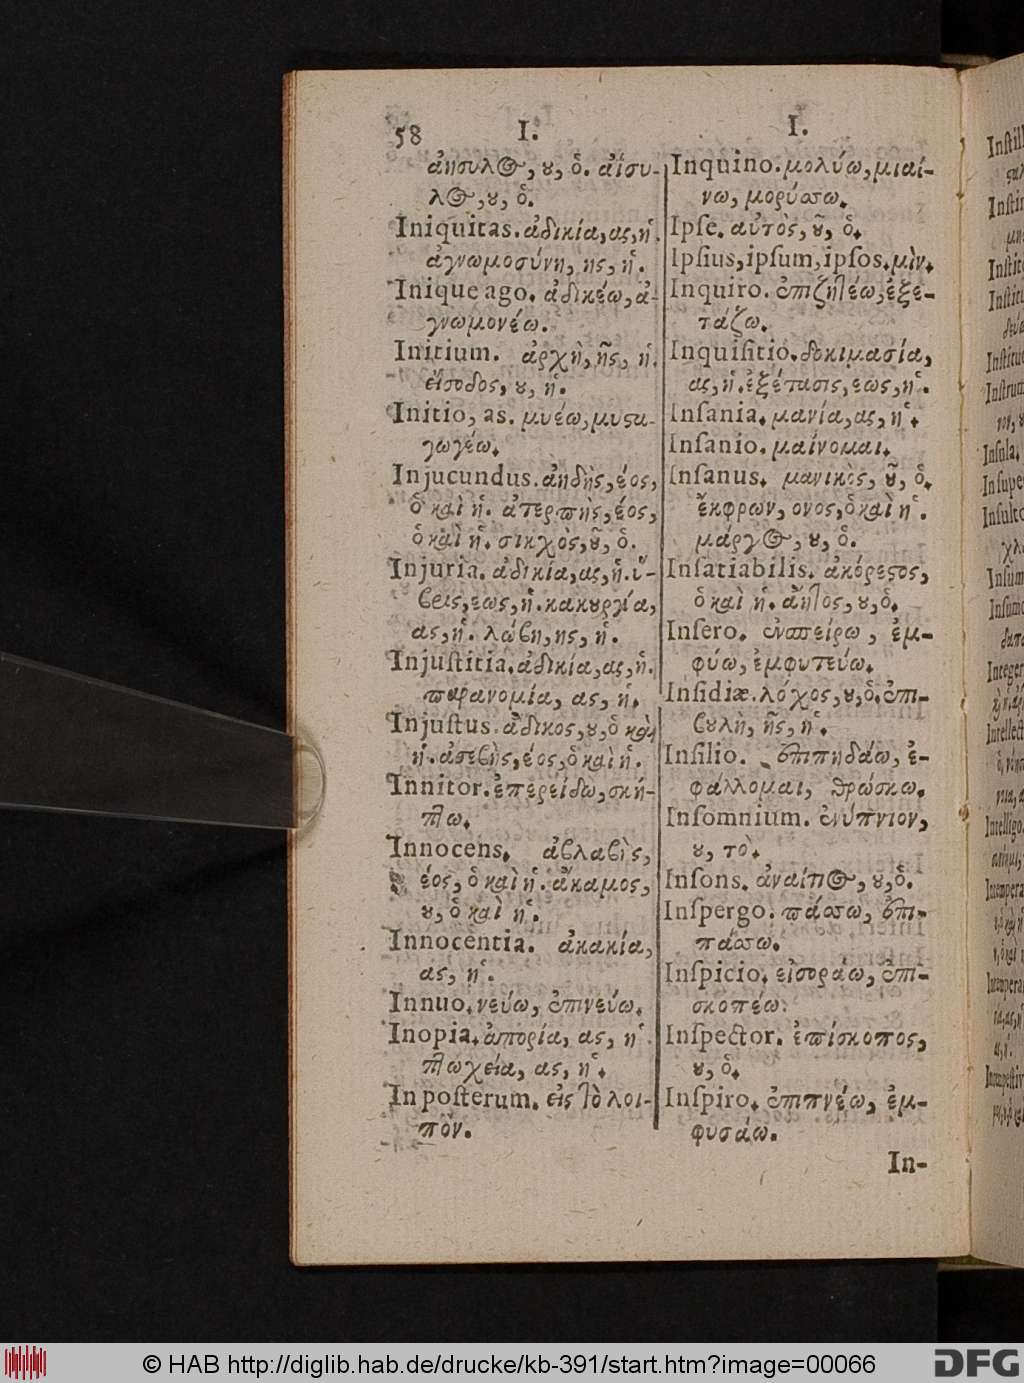 58 I.
ἀησυλ&, ȣ, ὁ. ἀϊσυ-
λ&, ȣ, ὁ.
Iniquitas. ἀδικία, ας, ἡ.
ἀγνωμοσύνη, ης, ἡ.
Inique ago. ἀδικέω, ἀ-
γνωμονέω.
Initium. ἀρχὴ, ῆς, ἡ.
εἴσοδος, ȣ, ἡ.
Initio, as. μυέω, μυςα-
γωγέω.
Injucundus. ἀηδὴς, έος,
ὁ καὶ ἡ. ἀτερπὴς, έος,
ὁ καὶ ἡ. σικχὸς, ȣ͂, ὁ.
Injuria. ἀδικία, ας, ἡ. ὕ-
ϐρις, εως, ἡ. κακȣργία,
ας, ἡ. λώϐη, ης, ἡ.
Injuſtitia. ἀδικία, ας, ἡ.
παρανομία, ας, ἡ.
Injuſtus. ἄδικος, ȣ, ὁ καὶ
ἡ. ἀσεϐὴς, έος, ὁ καὶ ἡ.
Innitor. ἐπερείδω, σκή-
πτω.
Innocens. ἀϐλαϐὶς,
έος, ὁ καὶ ἡ. ἄκαμος,
ȣ, ὁ καὶ ἡ.
Innocentia. ἀκακία,
ας, ἡ.
Innuo. νεύω, ἐπινεύω.
Inopia. ἀπορία, ας, ἡ.
πτωχεία, ας, ἡ.
In poſterum. εἰς τὸ λοι-
πὸν.
I.
Inquino. μολύω, μιαί-
νω, μορύσσω.
Ipſe. αὐτὸς, ȣ͂, ὁ.
Ipſius, ipſum, ipſos. μὶν.
Inquiro. ἐπιζητέω, ἐξε-
τάζω.
Inquiſitio. δοκιμασία,
ας, ἡ. ἐξέτασις, εως, ἡ.
Inſania. μανία, ας, ἡ.
Inſanio. μαίνομαι.
Inſanus. μανικὸς, ȣ͂, ὁ.
ἔκφρων, ονος, ὁ καὶ ἡ.
μάργ&, ȣ, ὁ.
Inſatiabilis. ἀκόρεςος,
ὁ καὶ ἡ. ἄητος, ȣ, ὁ.
Inſero. ἐνσπείρω, ἐμ-
φύω, ἐμφυτεύω.
Inſidiæ. λόχος, ȣ, ὁ. ἐπι-
ϐȣλὴ, ῆς, ἡ.
Inſilio. ἐπιπηδάω, ἐ-
φάλλομαι, θρώσκω.
Inſomnium. ἐνύπνιον,
ȣ, τὸ.
Inſons. ἀναίτι&, ȣ, ὁ.
Inſpergo. πάσσω, ἐπι-
πάσσω.
Inſpicio. εἰσοράω, ἐπι-
σκοπέω.
Inſpector. ἐπίσκοπος,
ȣ, ὁ.
Inſpiro. ἐπιπνέω, ἐμ-
φυσάω.
In-
© HAB http://diglib.hab.de/drucke/kb-391/start.htm?image=00066
DFG